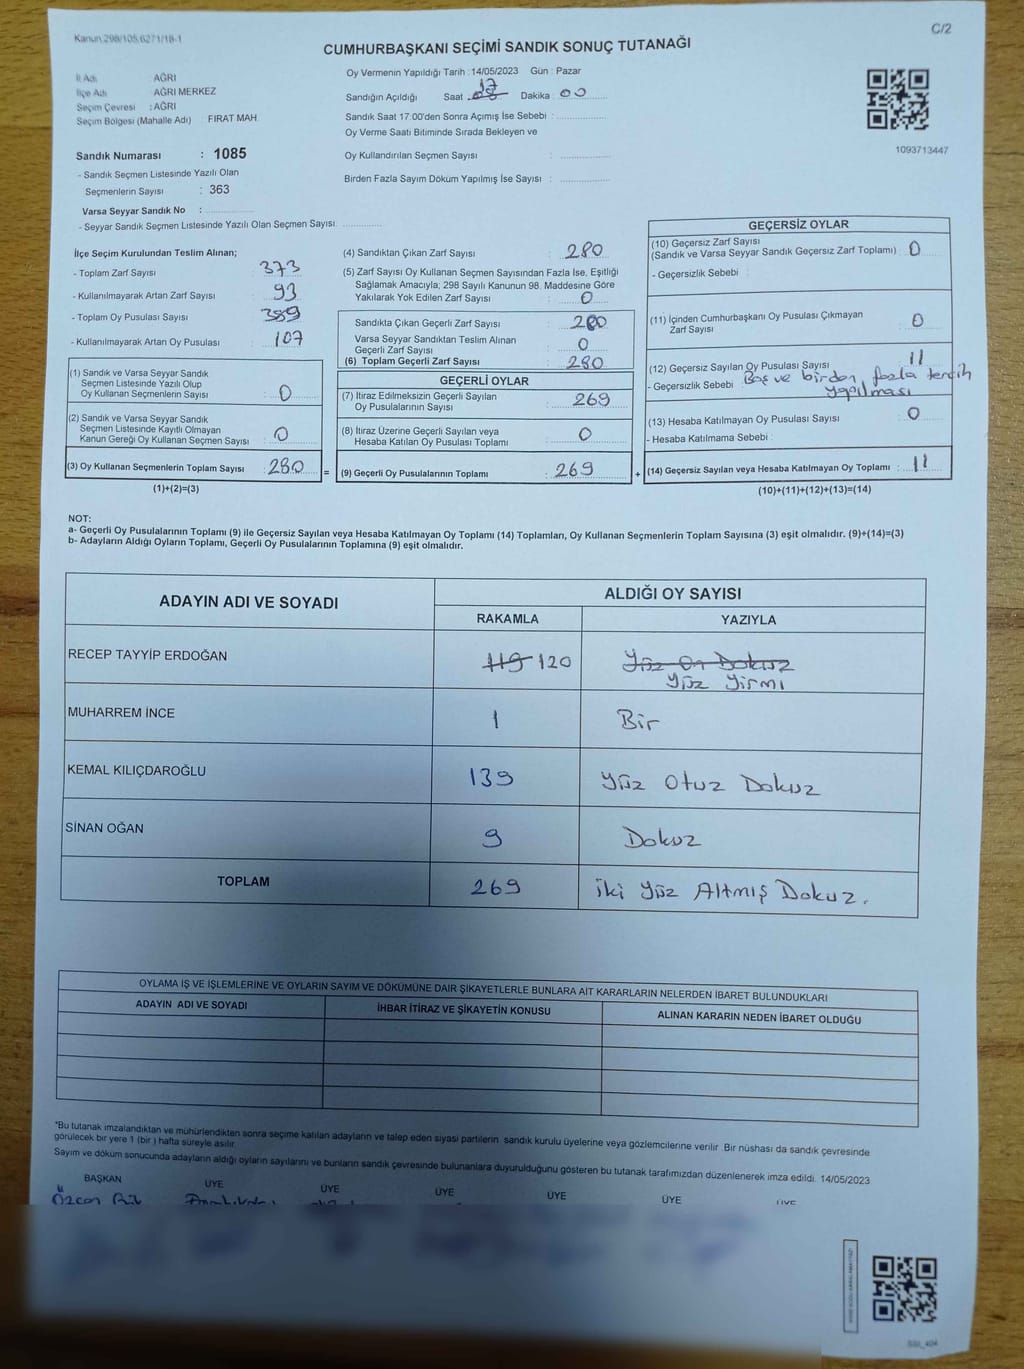 Kanun 298/105,6271/18-1
C/2
CUMHURBAŞKANI SEÇİMİ SANDIK SONUÇ TUTANAĞI
İl Adı AĞRI
İlçe Adı AĞRI MERKEZ
Seçim Çevresi : AĞRI
Seçim Bölgesi (Mahalle Adı) : FIRAT MAH.
Oy Vermenin Yapıldığı Tarih : 14/05/2023 Gün : Pazar
Sandığın Açıldığı Saat 17 Dakika : 00
Sandık Saat 17:00'den Sonra Açımış İse Sebebi :
Oy Verme Saati Bitiminde Sırada Bekleyen ve
Oy Kullandırılan Seçmen Sayısı :
Birden Fazla Sayım Döküm Yapılmış İse Sayısı :
1093713447
Sandık Numarası : 1085
- Sandık Seçmen Listesinde Yazılı Olan
Seçmenlerin Sayısı : 363
Varsa Seyyar Sandık No :
- Seyyar Sandık Seçmen Listesinde Yazılı Olan Seçmen Sayısı:
İlçe Seçim Kurulundan Teslim Alınan;
- Toplam Zarf Sayısı : 373
- Kullanılmayarak Artan Zarf Sayısı : 93
- Toplam Oy Pusulası Sayısı : 389
- Kullanılmayarak Artan Oy Pusulası : 107
(1) Sandık ve Varsa Seyyar Sandık
Seçmen Listesinde Yazılı Olup
Oy Kullanan Seçmenlerin Sayısı : 0
(2) Sandık ve Varsa Seyyar Sandık
Seçmen Listesinde Kayıtlı Olmayan
Kanun Gereği Oy Kullanan Seçmen Sayısı : 0
(3) Oy Kullanan Seçmenlerin Toplam Sayısı : 280 =
(1)+(2)=(3)
(4) Sandıktan Çıkan Zarf Sayısı : 280
(5) Zarf Sayısı Oy Kullanan Seçmen Sayısından Fazla İse, Eşitliği
Sağlamak Amacıyla; 298 Sayılı Kanunun 98. Maddesine Göre
Yakılarak Yok Edilen Zarf Sayısı : 0
Sandıkta Çıkan Geçerli Zarf Sayısı : 280
Varsa Seyyar Sandıktan Teslim Alınan
Geçerli Zarf Sayısı : 0
(6) Toplam Geçerli Zarf Sayısı : 280
GEÇERLİ OYLAR
(7) İtiraz Edilmeksizin Geçerli Sayılan
Oy Pusulalarının Sayısı : 269
(8) İtiraz Üzerine Geçerli Sayılan veya
Hesaba Katılan Oy Pusulası Toplamı : 0
(9) Geçerli Oy Pusulalarının Toplamı : 269 +
GEÇERSİZ OYLAR
(10) Geçersiz Zarf Sayısı
(Sandık ve Varsa Seyyar Sandık Geçersiz Zarf Toplamı) : 0
- Geçersizlik Sebebi :
(11) İçinden Cumhurbaşkanı Oy Pusulası Çıkmayan
Zarf Sayısı : 0
(12) Geçersiz Sayılan Oy Pusulası Sayısı : 11
- Geçersizlik Sebebi : Boş ve birden fazla tercih
yapılması
(13) Hesaba Katılmayan Oy Pusulası Sayısı : 0
- Hesaba Katılmama Sebebi :
(14) Geçersiz Sayılan veya Hesaba Katılmayan Oy Toplamı : 11
(10)+(11)+(12)+(13)=(14)
NOT:
a- Geçerli Oy Pusulalarının Toplamı (9) ile Geçersiz Sayılan veya Hesaba Katılmayan Oy Toplamı (14) Toplamları, Oy Kullanan Seçmenlerin Toplam Sayısına (3) eşit olmalıdır. (9)+(14)=(3)
b- Adayların Aldığı Oyların Toplamı, Geçerli Oy Pusulalarının Toplamına (9) eşit olmalıdır.
ADAYIN ADI VE SOYADI
ALDIĞI OY SAYISI
RAKAMLA YAZIYLA
RECEP TAYYİP ERDOĞAN 119 120 Yüz On Dokuz
Yüz Yirmi
MUHARREM İNCE 1 Bir
KEMAL KILIÇDAROĞLU 139 Yüz Otuz Dokuz
SİNAN OĞAN 9 Dokuz
TOPLAM 269 iki Yüz Altmış Dokuz.
OYLAMA İŞ VE İŞLEMLERİNE VE OYLARIN SAYIM VE DÖKÜMÜNE DAİR ŞİKAYETLERLE BUNLARA AİT KARARLARIN NELERDEN İBARET BULUNDUKLARI
ADAYIN ADI VE SOYADI İHBAR İTİRAZ VE ŞİKAYETİN KONUSU ALINAN KARARIN NEDEN İBARET OLDUĞU
*Bu tutanak imzalandıktan ve mühürlendikten sonra seçime katılan adayların ve talep eden siyasi partilerin sandık kurulu üyelerine veya gözlemcilerine verilir. Bir nüshası da sandık çevresinde
görülecek bir yere 1 (bir) hafta süreyle asılır.
Sayım ve döküm sonucunda adayların aldığı oyların sayılarını ve bunların sandık çevresinde bulunanlara duyurulduğunu gösteren bu tutanak tarafımızdan düzenlenerek imza edildi. 14/05/2023
BAŞKAN ÜYE ÜYE ÜYE ÜYE ÜYE ÜYE
Özcan